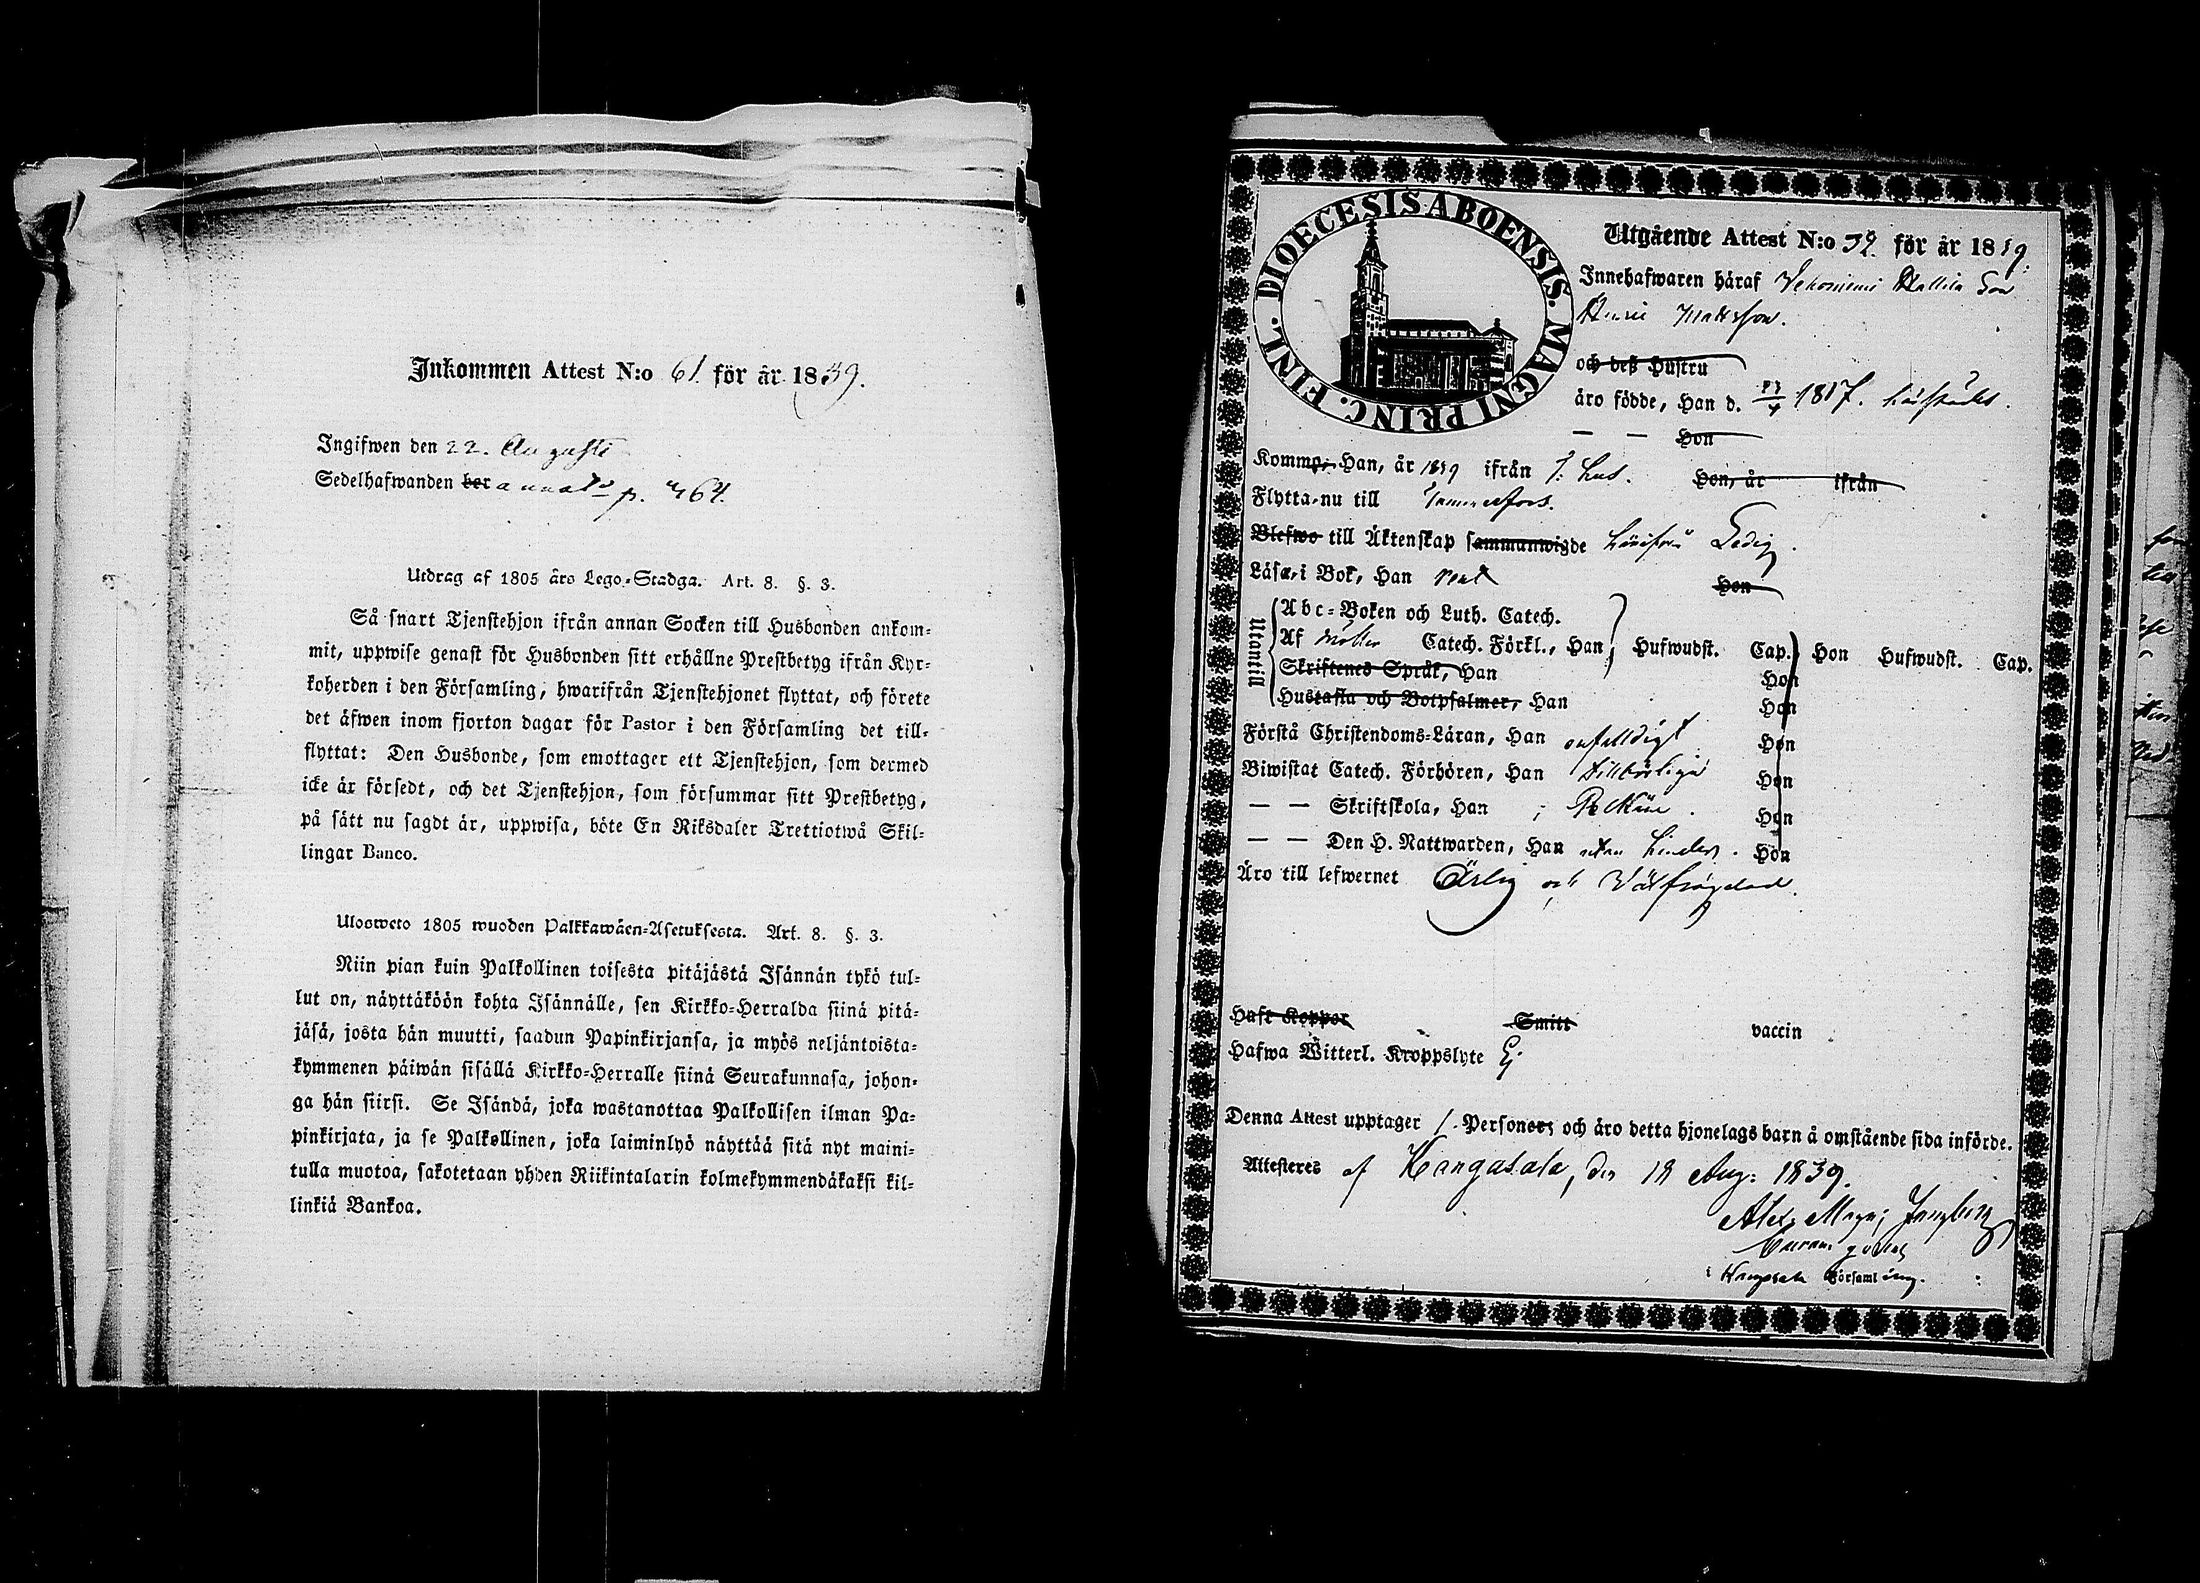 Inkommen Attest N:o 61. för år 1839.
Ingifwen den 22. Augusti
Sedelhafwanden ber annots p. 464.
Utdrag af 1805 års Lego-Stadga. Art. 8. §. 3.
Så snart Tjenstehjon ifrån annan Socken till Husbonden ankom-
mit, uppwise genast för Husbonden sitt erhållne Prestbetyg ifrån Kyr-
koherden i den Församling, hwarifrån Tjenstehjonet flyttat, och förete
det äfwen inom fjorton dagar för Pastor i den Församling det till-
flyttat: Den Husbonde, som emottager ett Tjenstehjon, som dermed
icke är försedt, och det Tjenstehjon, som försummar sitt Prestbetyg,
på sätt nu sagdt är, uppwisa, böte En Riksdaler Trettiotwå Skil-
lingar Banco.
Ulosweto 1805 wuoden Palkkawäen-Asetuksesta. Art. 8. §. 3.
Niin pian kuin Palkollinen toisesta pitäjästä Isännän tykö tul-
lut on, näyttäköön kohta Isännälle, sen Kirkko-Herralda siinä pitä-
jäsä, josta hän muutti, saadun Papinkirjansa, ja myös neljäntoista-
kymmenen päiwän sisällä Kirkko-Herralle siinä Seurakunnasa, johon-
ga hän siirsi. Se Isändä, joka wastanottaa Palkollisen ilman Pa-
pinkirjata, ja se Palkollinen, joka laiminlyö näyttää sitä nyt maini-
tulla muotoa, sakotetaan yhden Riikintalarin kolmekymmendäkaksi kil-
linkiä Bankoa.
DIOECESIS ABOENSIS. MAGNI PRINC. FINL.
Utgående Attest N:o 32. för år 1839.
Innehafwaren häraf Vehoniemi Son
Mattsson.
och deß Hustru
äro födde, Han d. 23/4 1817. härstädes.
— — Hon
Komme, Han, år 1839 ifrån Hon, år ifrån
Flytta nu till Tammerfors.
Blefwo till Äktenskap sammanwigde härifrån Ledig.
Läsa, i Bok, Han rent Hon
Utantill
Abc-Boken och Luth. Catech.
Af Möllers Catech. Förkl., Han Hufwudst. Cap. Hon Hufwudst. Cap.
Skriftenes Språk, Han Hon
Hustafla och Botpsalmer, Han Hon
Förstå Christendoms-Läran, Han enfalldigt Hon
Biwistat Catech. Förhören, Han tillbörliga Hon
— — Skriftskola, Han i Pelkäne. Hon
— — Den H. Nattwarden, Han utan hinder. Hon
Äro till lefwernet Ärlig och Välfrägdad.
Haft Koppor Smitt vaccin
Hafwa Witterl. Kroppslyte Ej.
Denna Attest upptager 1. Personer, och äro detta hjonelags barn å omstående sida införde.
Attesteres af Kangasala, den 18 Aug: 1839.
Alex. Magn; Ljungberg
i Kangasala Församling.